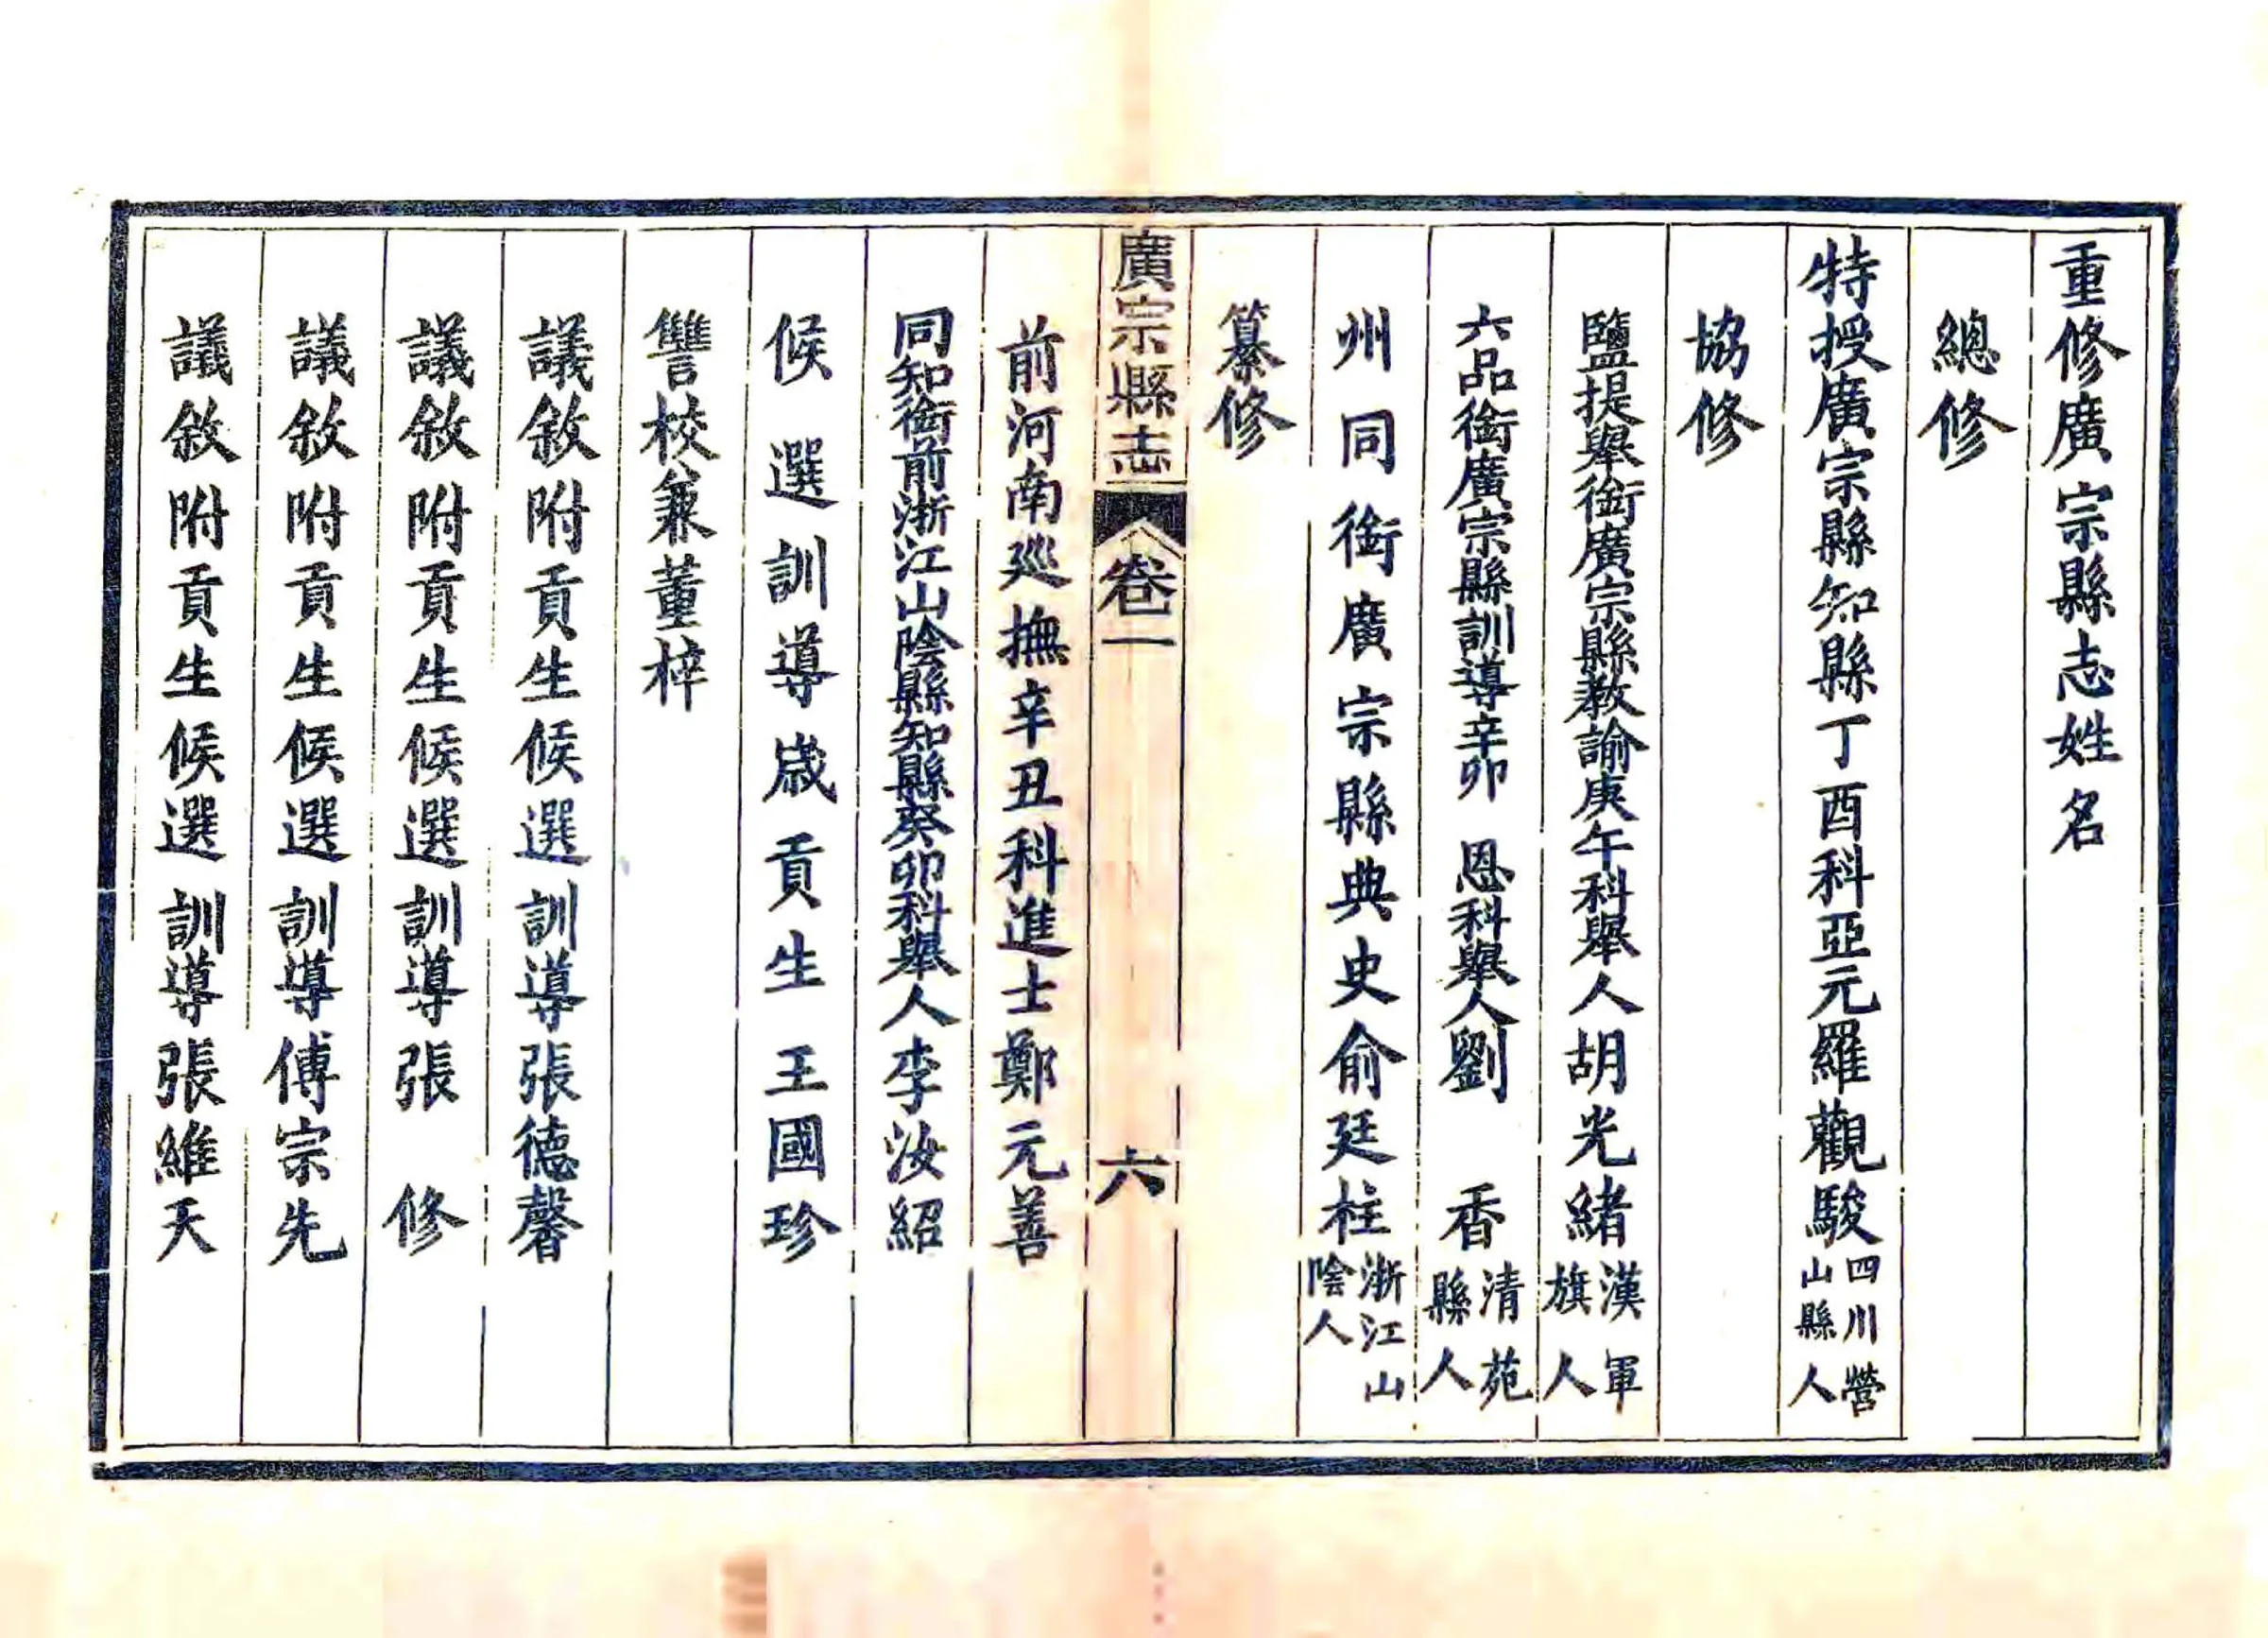 重修廣宗縣志姓名
總修
特授廣宗縣知縣丁酉科亞元羅觀駿四川營山縣人
協修
鹽提舉銜廣宗縣教諭庚午科舉人胡光緒漢軍旗人
六品銜廣宗縣訓導辛卯　恩科舉人劉　香清苑縣人
州同銜廣宗縣典史俞廷柱浙江山陰人
纂修
廣宗縣志　卷一　六
前河南巡撫辛丑科進士鄭元善
同知銜前浙江山陰縣知縣癸卯科舉人李汝紹
候選訓導歲貢生王國珍
讐校兼董梓
議敘附貢生候選訓導張德馨
議敘附貢生候選訓導張　修
議敘附貢生候選訓導傅宗先
議敘附貢生候選訓導張維天